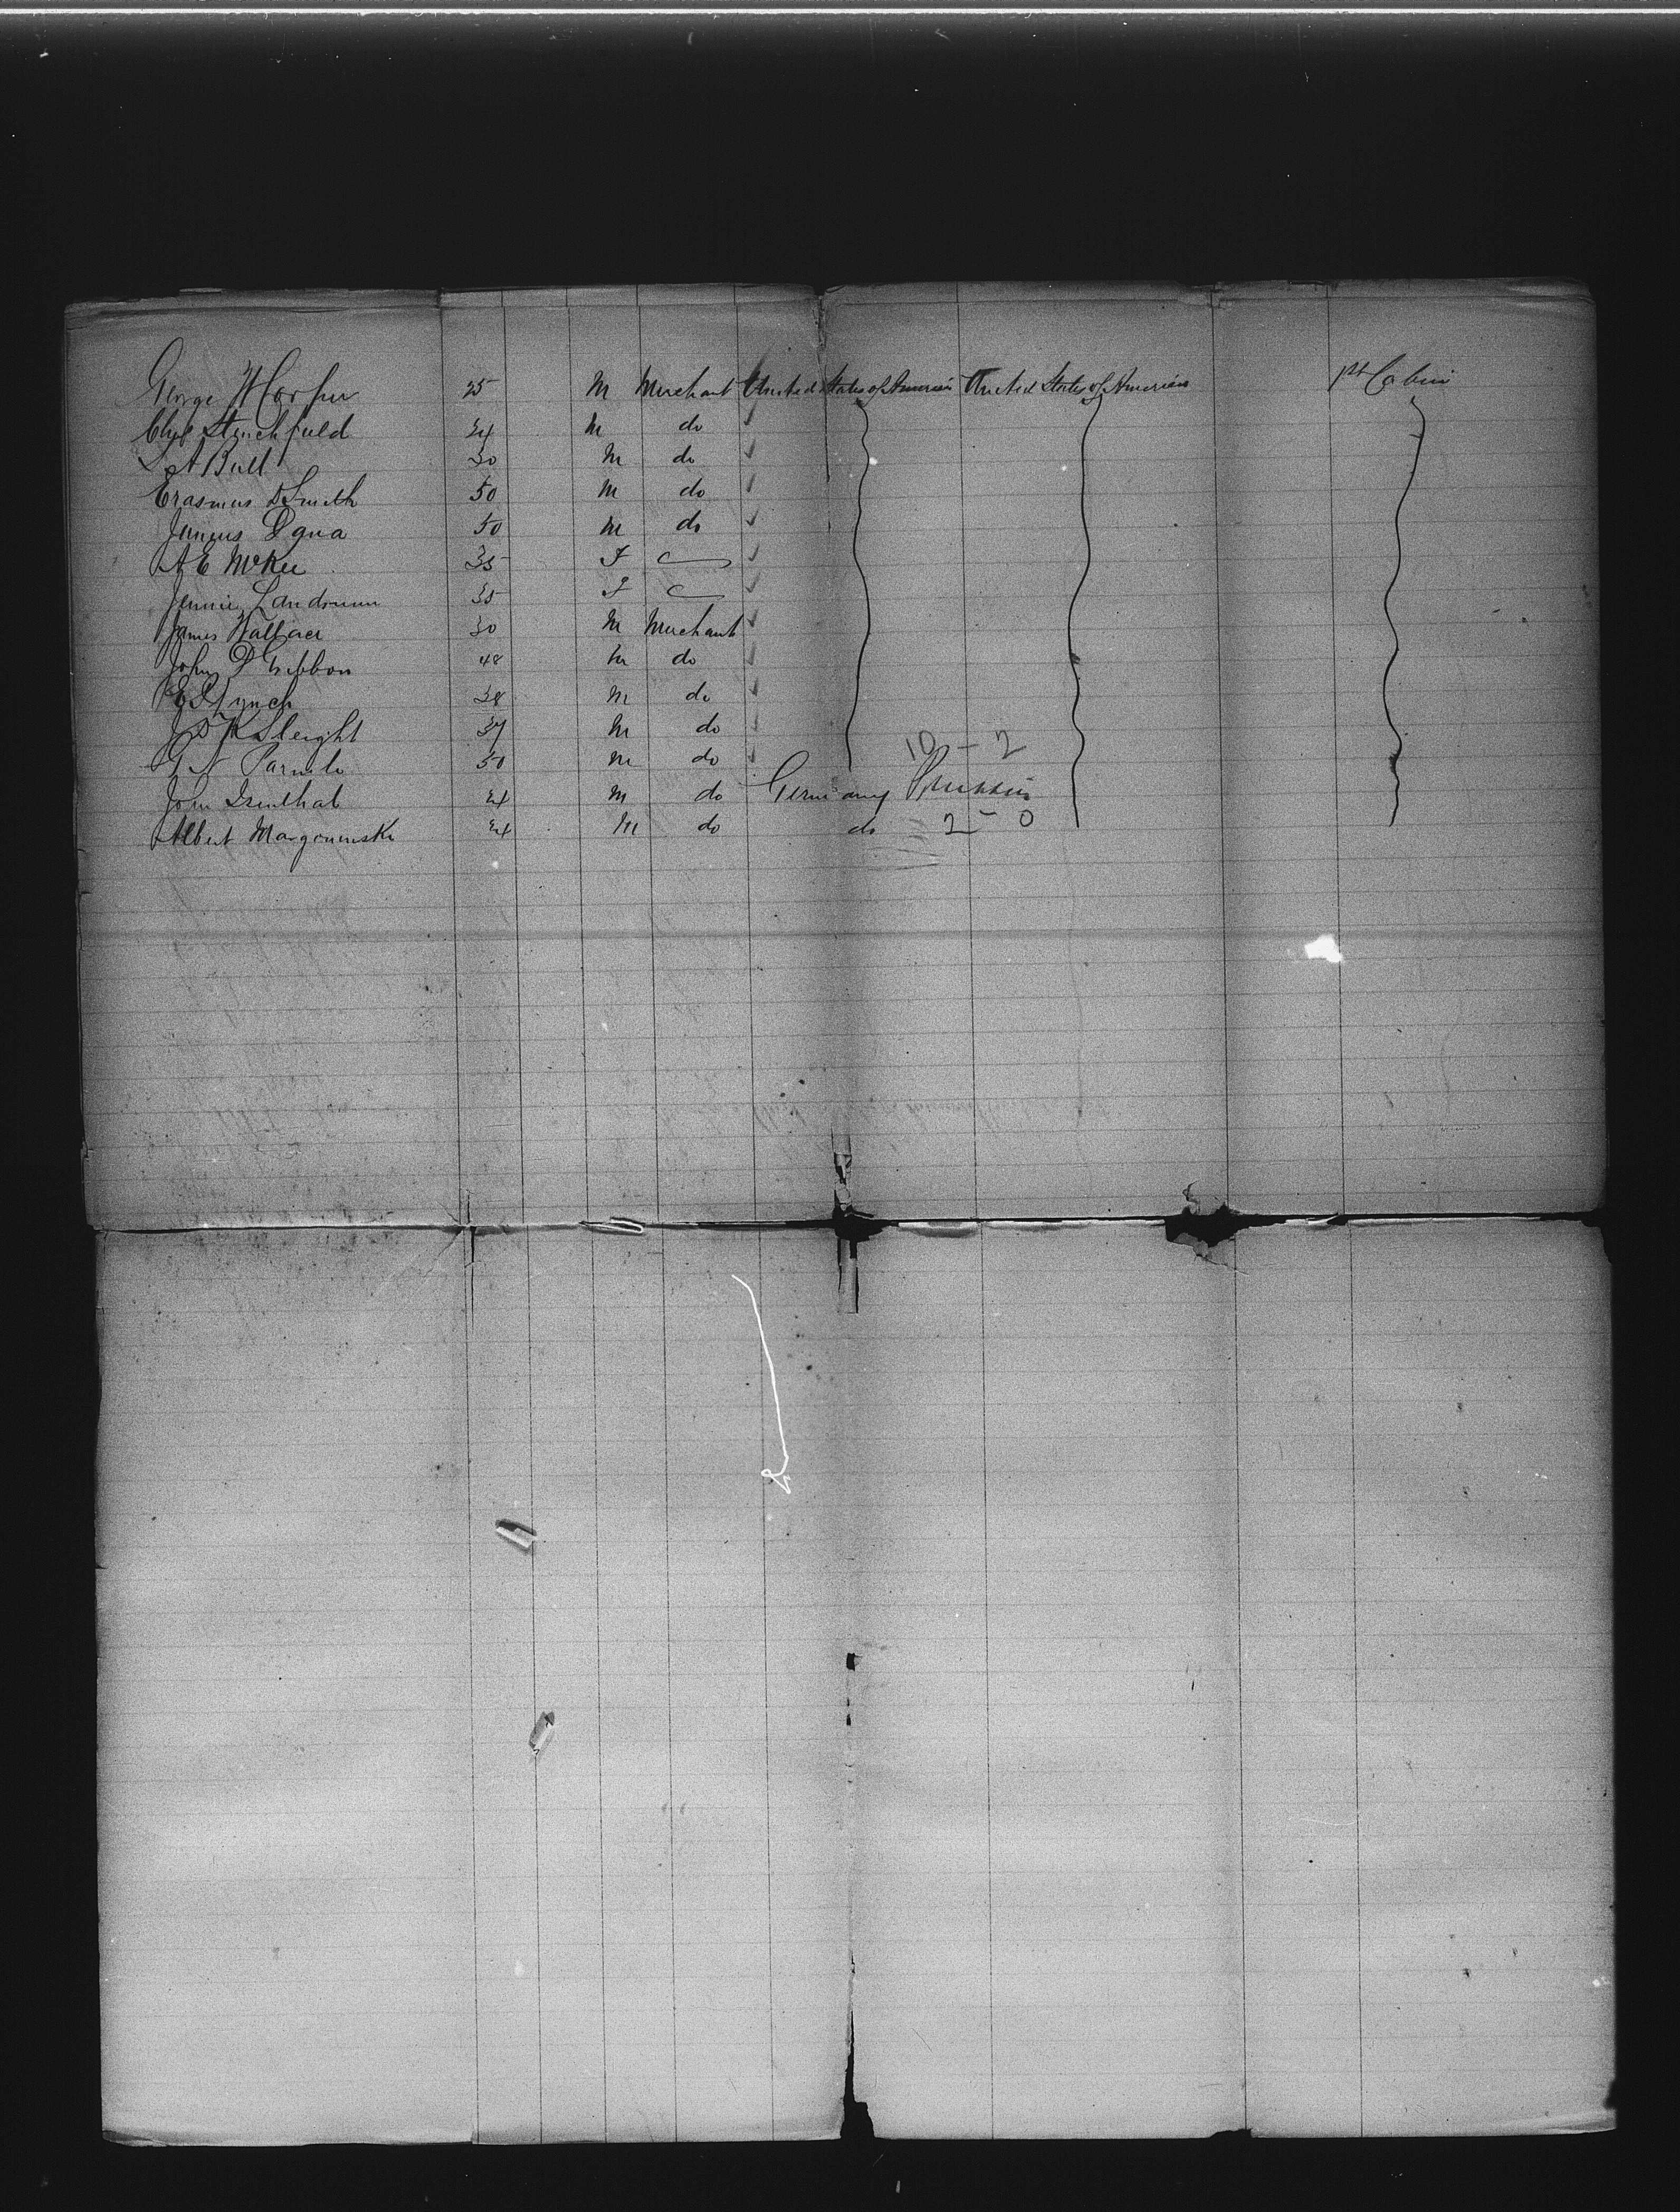 George W Harper 25 M Merchant United States of America United States of America 1st Cabin
Stinchfield 24 M do
L A Bull 30 M do
Erasmus D Smith 50 M do
50 M do
A E McKee 35 F
Jennie Landrum 35 F
James Wallace 30 M Merchant
John D Gibbon 48 M do
Lynch 38 M do
Sleight 37 M do
10 - 2
50 M do
John Isenthal 24 M do Germany Prussia
Albert 24 M do do 2 - 0